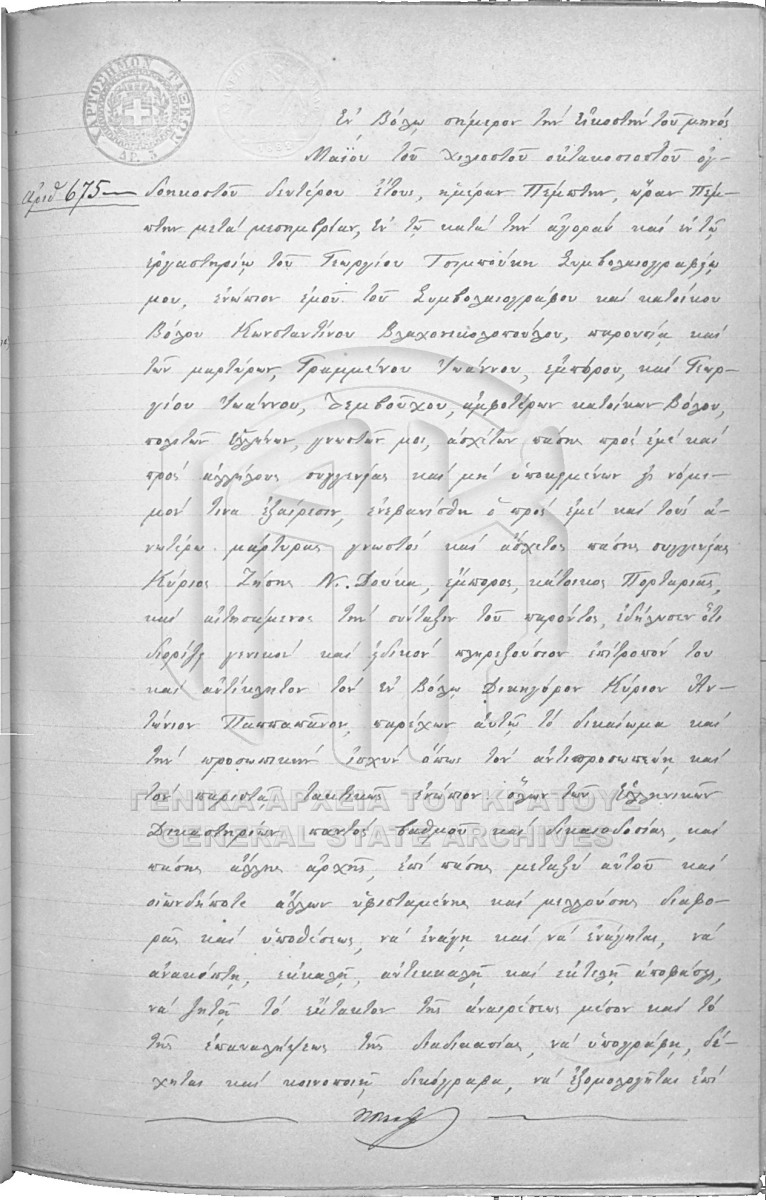 ΧΑΡΤΟΣΗΜΟΝ ΤΑΞΕΩΣ
ΔΡ. 3
Ἐν Βόλῳ σήμερον τὴν εἰκοστὴν τοῦ μηνὸς
Μαΐου τοῦ χιλιοστοῦ ὀκτακοσιοστοῦ ὀγ-
ἀριθ. 675
δοηκοστοῦ δευτέρου ἔτους, ἡμέραν Πέμπτην, ὥραν Πέμ-
πτην μετὰ μεσημβρίαν, ἐν τῷ κατὰ τὴν ἀγορὰν καὶ ἐν τῷ
ἐργαστηρίῳ τοῦ Γεωργίου Τσιμπούκη Συμβολαιογραφείῳ
μου, ἐνώπιον ἐμοῦ τοῦ Συμβολαιογράφου καὶ κατοίκου
Βόλου Κωνσταντίνου Βλαχονικολοπούλου, παρουσίᾳ καὶ
τῶν μαρτύρων, Γραμμένου Ἰωάννου, ἐμπόρου, καὶ Γεωρ-
γίου Ἰωάννου, Ζεμβούχου, ἀμφοτέρων κατοίκων Βόλου,
πολιτῶν Ἑλλήνων, γνωστῶν μοι, ἀσχέτων πάσης πρὸς ἐμὲ καὶ
πρὸς ἀλλήλους συγγενείας καὶ μὴ ὑποκειμένων εἰς νόμι-
μόν τινα ἐξαίρεσιν, ἐνεφανίσθη ὁ πρὸς ἐμὲ καὶ τοὺς ἀ-
νωτέρω μάρτυρας γνωστὸς καὶ ἄσχετος πάσης συγγενείας
Κύριος Ζήσης Ν. Δούκα, ἔμπορος, κάτοικος Πορταριᾶς,
καὶ αἰτησάμενος τὴν σύνταξιν τοῦ παρόντος, ἐδήλωσεν ὅτι
διορίζει γενικὸν καὶ εἰδικὸν πληρεξούσιον ἐπίτροπόν του
καὶ ἀντίκλητον τὸν ἐν Βόλῳ Δικηγόρον Κύριον Ἀν-
τώνιον Παππαπᾶνον, παρέχων αὐτῷ τὸ δικαίωμα καὶ
τὴν προσωπικὴν ἰσχὺν ὅπως τὸν ἀντιπροσωπεύῃ καὶ
τὸν παριστᾷ τακτικῶς ἐνώπιον ὅλων τῶν Ἑλληνικῶν
ΓΕΝΙΚΑ ΑΡΧΕΙΑ ΤΟΥ ΚΡΑΤΟΥΣ
Δικαστηρίων παντὸς βαθμοῦ καὶ δικαιοδοσίας, καὶ
GENERAL STATE ARCHIVES
πάσης ἄλλης ἀρχῆς, ἐπὶ πάσης μεταξὺ αὐτοῦ καὶ
οἱωνδήποτε ἄλλων ὑφισταμένης καὶ μελλούσης διαφο-
ρᾶς καὶ ὑποθέσεως, νὰ ἐνάγῃ καὶ νὰ ἐνάγηται, νὰ
ἀνακόπτῃ, ἐκκαλῇ, ἀντεκκαλῇ καὶ ἐκτελῇ ἀποφάσεις,
νὰ ζητῇ τὸ ἔκτακτον τῆς ἀναιρέσεως μέσον καὶ τὸ
τῆς ἐπαναλήψεως τῆς διαδικασίας, νὰ ὑπογράφῃ, δέ-
χηται καὶ κοινοποιῇ δικόγραφα, νὰ ἐξομολογῆται ἐπὶ